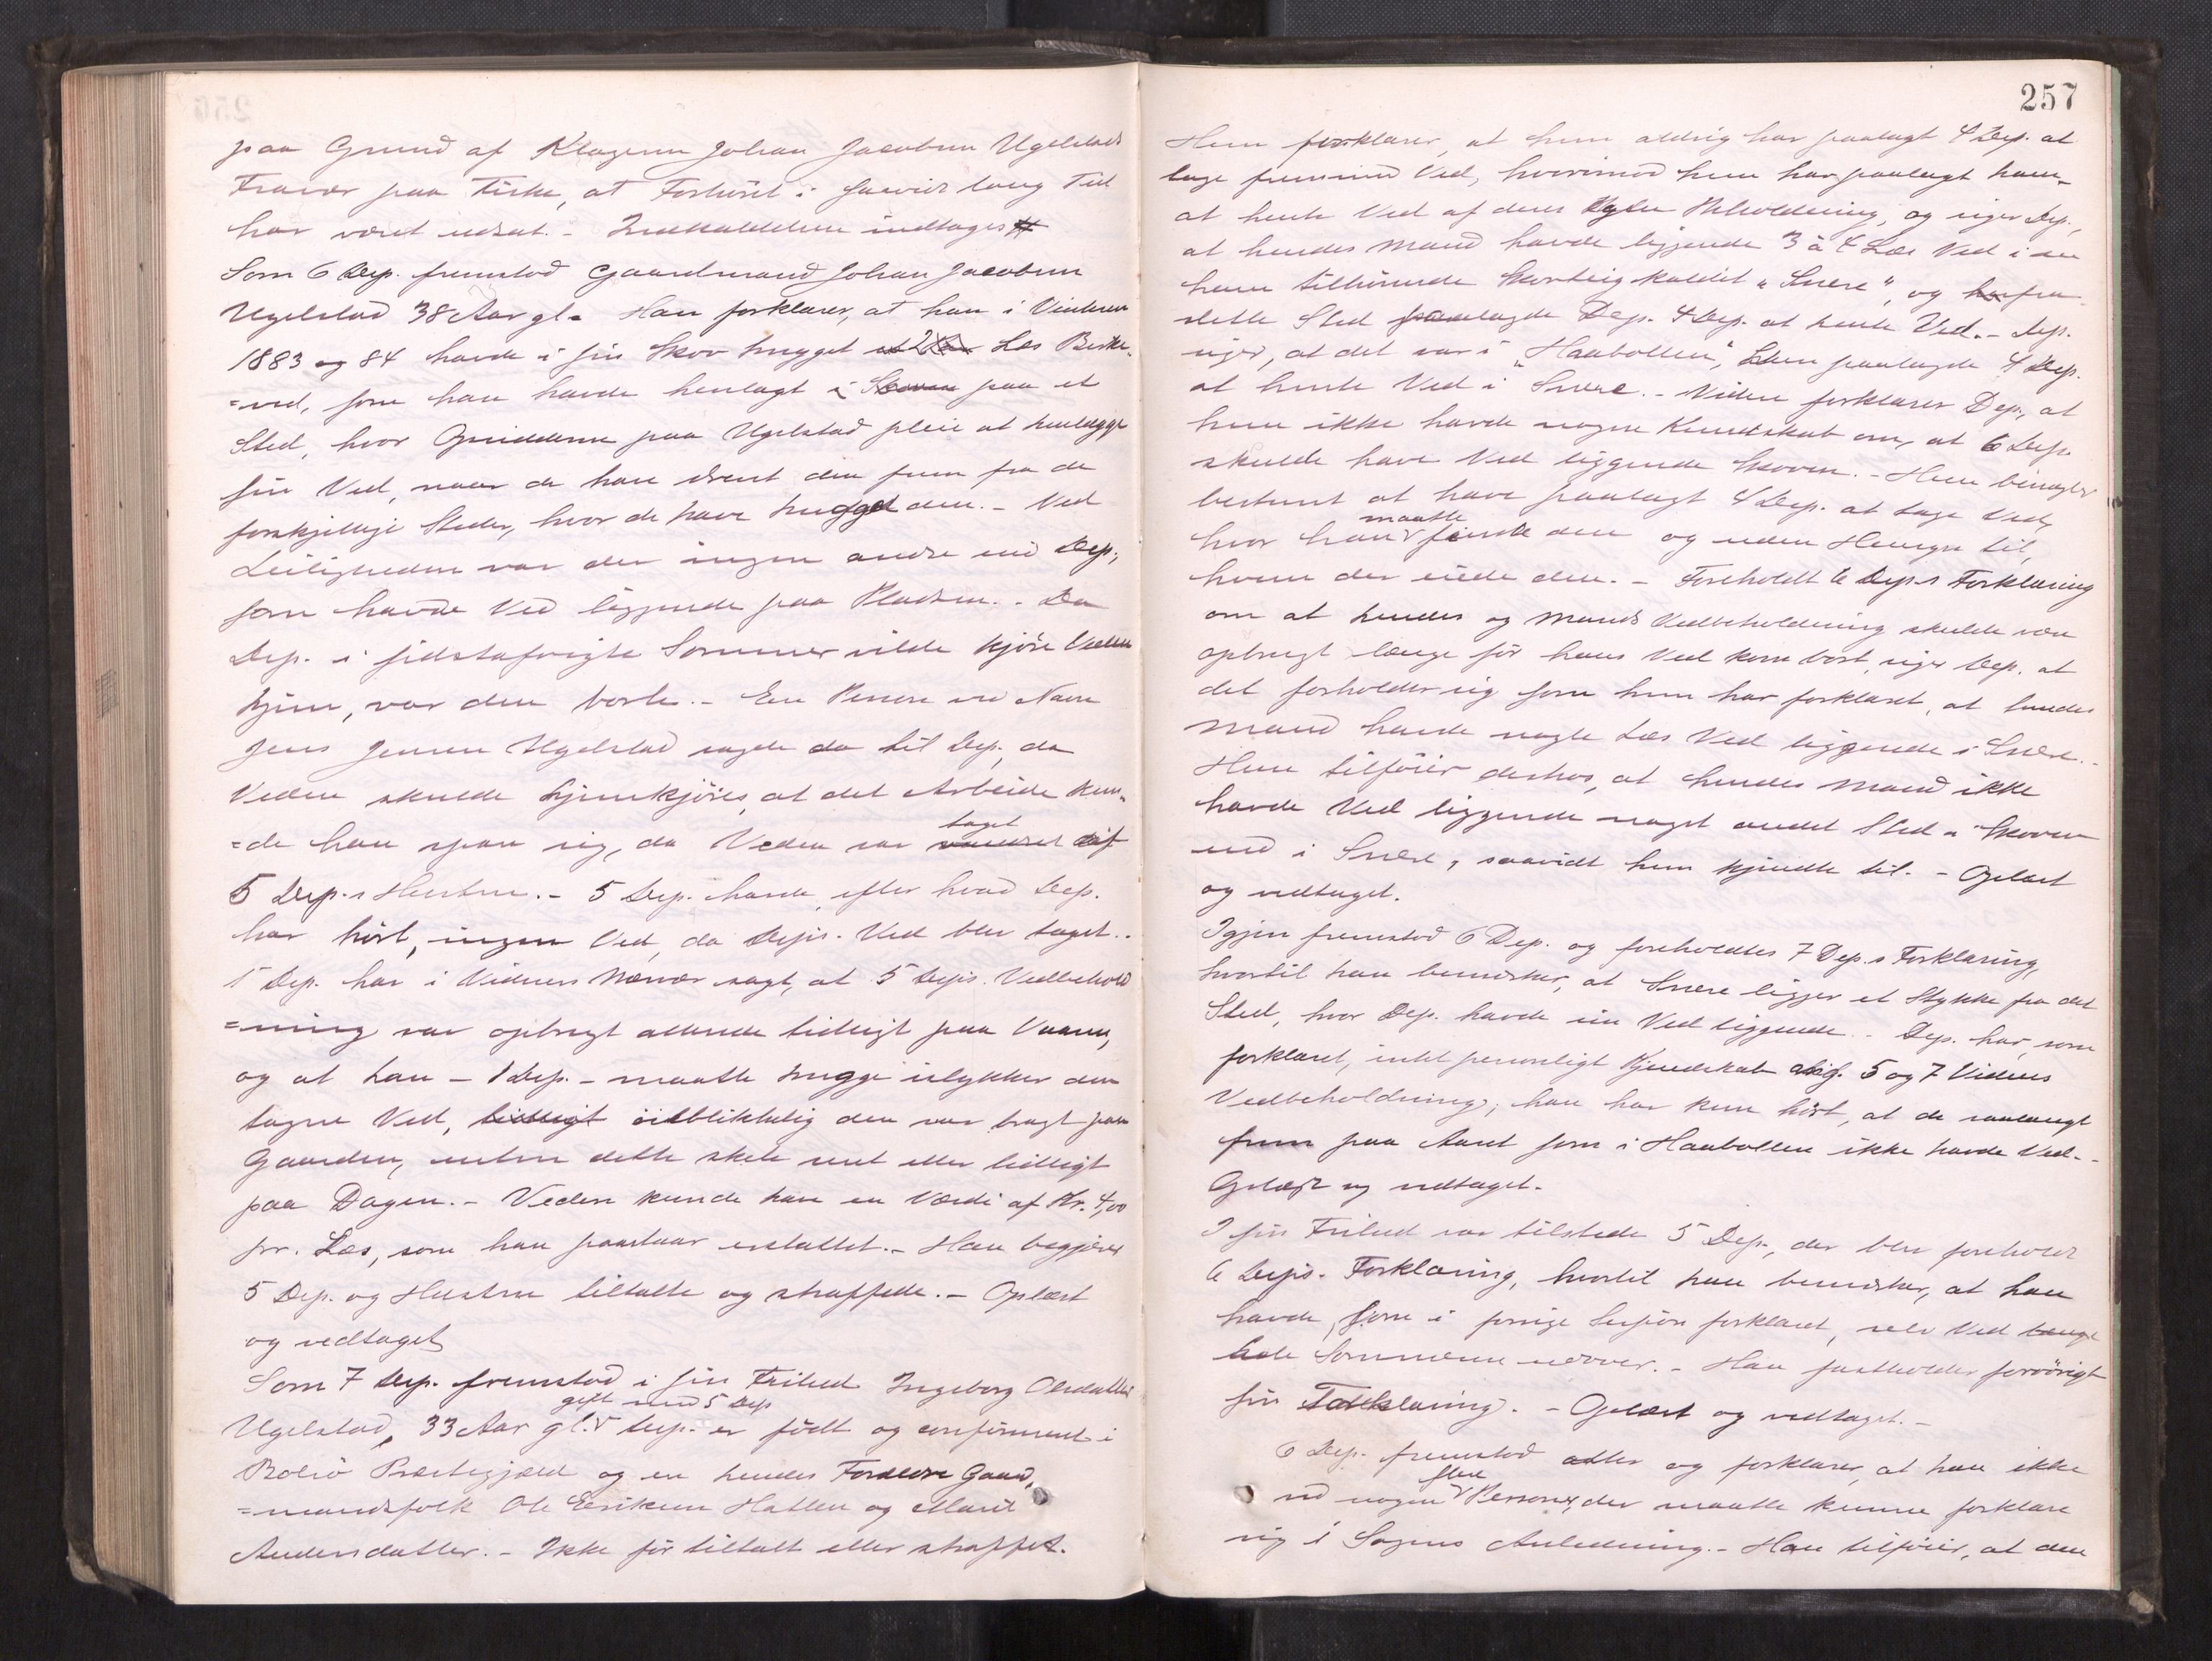 paa Grund af Klageren Johan Jacobsen Ugelstads
Fravær paa Fiske, at Forhøret i saavidt lang Tid
har været udsat. - Indkaldelsen indtages #
Som 6 Dep. fremstod Gaardmand Johan Jacobsen
Ugelstad 38 Aar gl. Han forklarer, at han i Vinteren
1883 og 84 havde i sin Skov hugget 2 Læs Birke-
=ved, som han havde henlagt i Skoven paa et
Sted, hvor Opsidderne paa Ugelstad pleie at henlægge
sin Ved, naar de have drevet den frem fra de
forskjellige Steder, hvor de have hugget den. - Ved
Leiligheden var der ingen andre end Dep.,
som havde Ved liggende paa Pladsen. - Da
Dep. i sidstafvigte Sommer vilde kjøre Veden
hjem, var den borte. - En Person ved Navn
Jens Jensen Ugelstad sagde da til Dep., da
Veden skulde hjemkjøres, at det Arbeide kun-
=de han spare sig, da Veden var taget af
5 Dep.s Hustru. - 5 Dep. havde, efter hvad Dep.
har hørt, ingen Ved, da Depts. Ved blev taget. -
1 Dep. har i Vidners Nærvær sagt, at 5 Depts. Vedbehold
=ning var opbrugt allerede tidligt paa Vaaren,
og at han - 1 Dep. - maatte hugge istykker den
tagne Ved, tidligt øieblikkelig den var bragt paa
Gaarden, enten dette skete sent eller tidligt
paa Dagen. - Veden kunde have en Værdi af Kr. 4,00
pr. Læs, som han paastaar erstattet. - Han begjærer
5 Dep. og Hustru tiltalte og straffede. - Oplæst
og vedtaget
Som 7 Dep. fremstod i sin Frihed Ingeborg Olesdatter
gift med 5 Dep
Ugelstad, 33 Aar gl. Dep. er født og confirmeret i
Bolsø Præstegjæld og er hendes Forældre Gaard-
=mandsfolk Ole Eriksen Hatlen og Marit
Andersdatter. - Ikke før tiltalt eller straffet.
257
Hun forklarer, at hun aldrig har paalagt 4 Dep. at
tage fremmed Ved, hvorimod hun har paalagt ham
at hente Ved af deres egen Beholdning, og siger Dep.,
at hendes Mand havde liggende 3 à 4 Læs Ved i en
ham tilhørende Skovteig kaldet "Snere", og fra
dette Sted paalagde Dep. 4 Dep. at hente Ved. - Dep.
siger, at det var i "Haabollen", hun paalagde 4 Dep.
at hente Ved i "Snere. - Videre forklarer Dep., at
hun ikke havde nogen Kundskab om, at 6 Dep.
skulde have Ved liggende i Skoven. - Hun benægter
bestemt at have paalagt 4 Dep. at tage Ved,
maatte
hvor han finde den og uden Hensyn til,
hvem der eiede den. - Foreholdt 6 Dep.s Forklaring
om at hendes og Mands Vedbeholdning skulde være
opbrugt længe før hans Ved kom bort, siger Dep. at
det forholder sig som hun har forklaret, at hendes
Mand havde nogle Læs Ved liggende i Snere. -
Hun tilføier derhos, at hendes Mand ikke
havde Ved liggende noget andet Sted i Skoven
end i Snere, saavidt hun kjendte til. - Oplæst
og vedtaget.
Igjen fremstod 6 Dep. og foreholdtes 7 Dep.s Forklaring,
hvortil han bemærker, at Snere ligger et Stykke fra det
Sted, hvor Dep. havde sin Ved liggende. - Dep. har, som
forklaret, intet personligt Kjendskab til 5 og 7 Vidners
Vedbeholdning; han har kun hørt, at de saalangt
frem paa Aaret som i Haabollen ikke havde Ved. -
Oplæst og vedtaget. -
I sin Frihed var tilstede 5 Dep., der blev foreholdt
6 Depts. Forklaring, hvortil han bemærker, at han
havde, som i forrige Session forklaret, selv Ved længe
hele Sommeren udover. - Han fastholder forøvrigt
sin Forklaring. - Oplæst og vedtaget. -
6 Dep. fremstod atter og forklarer, at han ikke
flere
ved nogen Personer, der maatte kunne forklare
sig i Sagens Anledning. - Han tilføier, at den